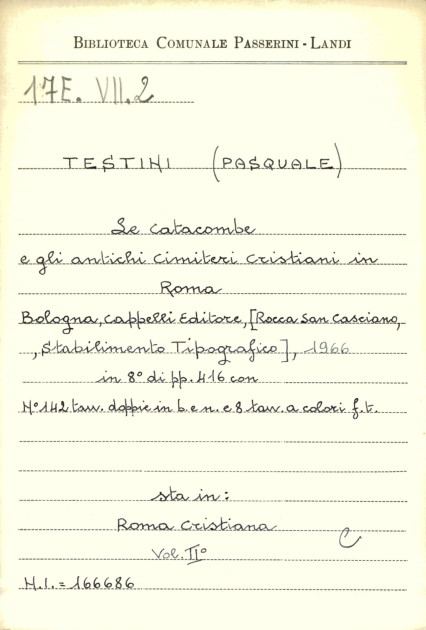 BIBLIOTECA COMUNALE PASSERINI - LANDI
17E. VII. 2
TESTINI (PASQUALE)
Le catacombe
e gli antichi cimiteri cristiani in
Roma
Bologna, Cappelli Editore, [Rocca San Casciano,
, Stabilimento Tipografico], 1966
in 8° di pp. 416 con
N° 142 tav. doppie in b. e n. e 8 tav. a colori f. t.
sta in:
Roma Cristiana
C
Vol. II°
N.I. = 166686